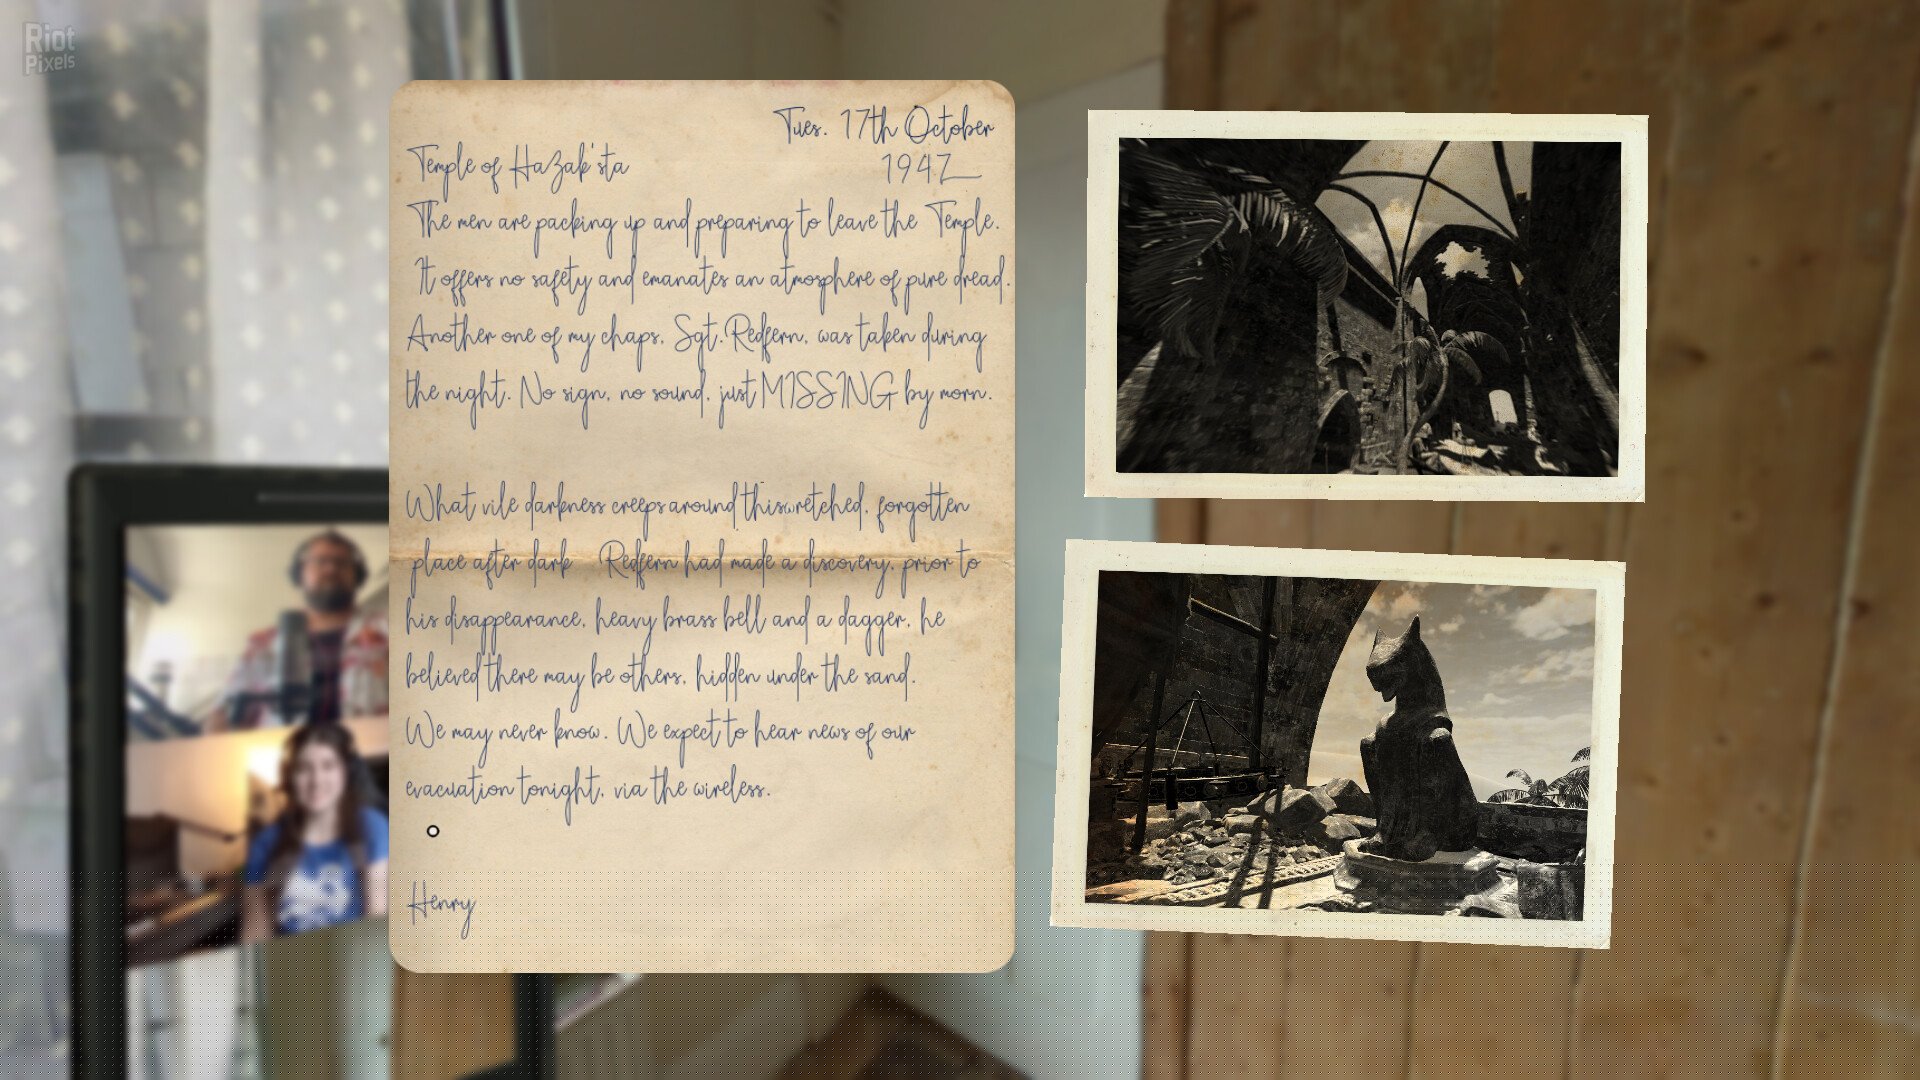 Riot
Pixels
Tues. 17th October
Temple of HaZak'sta
1942
The men are packing up and preparing to leave the Temple.
It offers no safety and emanates an atmosphere of pure dread.
Another one of my chaps, Sgt. Redfern, was taken during
the night. No sign, no sound, just MISSING by morn.
What vile darkness creeps around thiswretched, forgotten
place after dark Redfern had made a discovery, prior to
his disappearance, heavy brass bell and a dagger, he
believed there may be others, hidden under the sand.
We may never know. We expect to hear news of our
evacuation tonight, via the wireless.
Henry